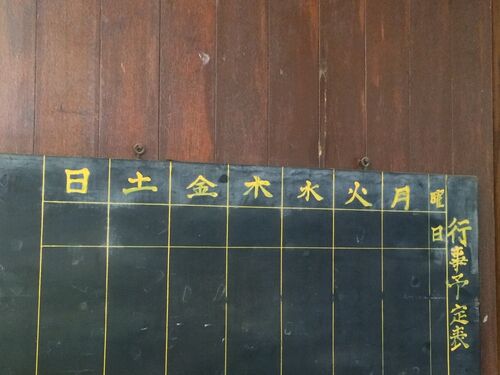 行事予定表
曜 月 火 水 木 金 土 日
日